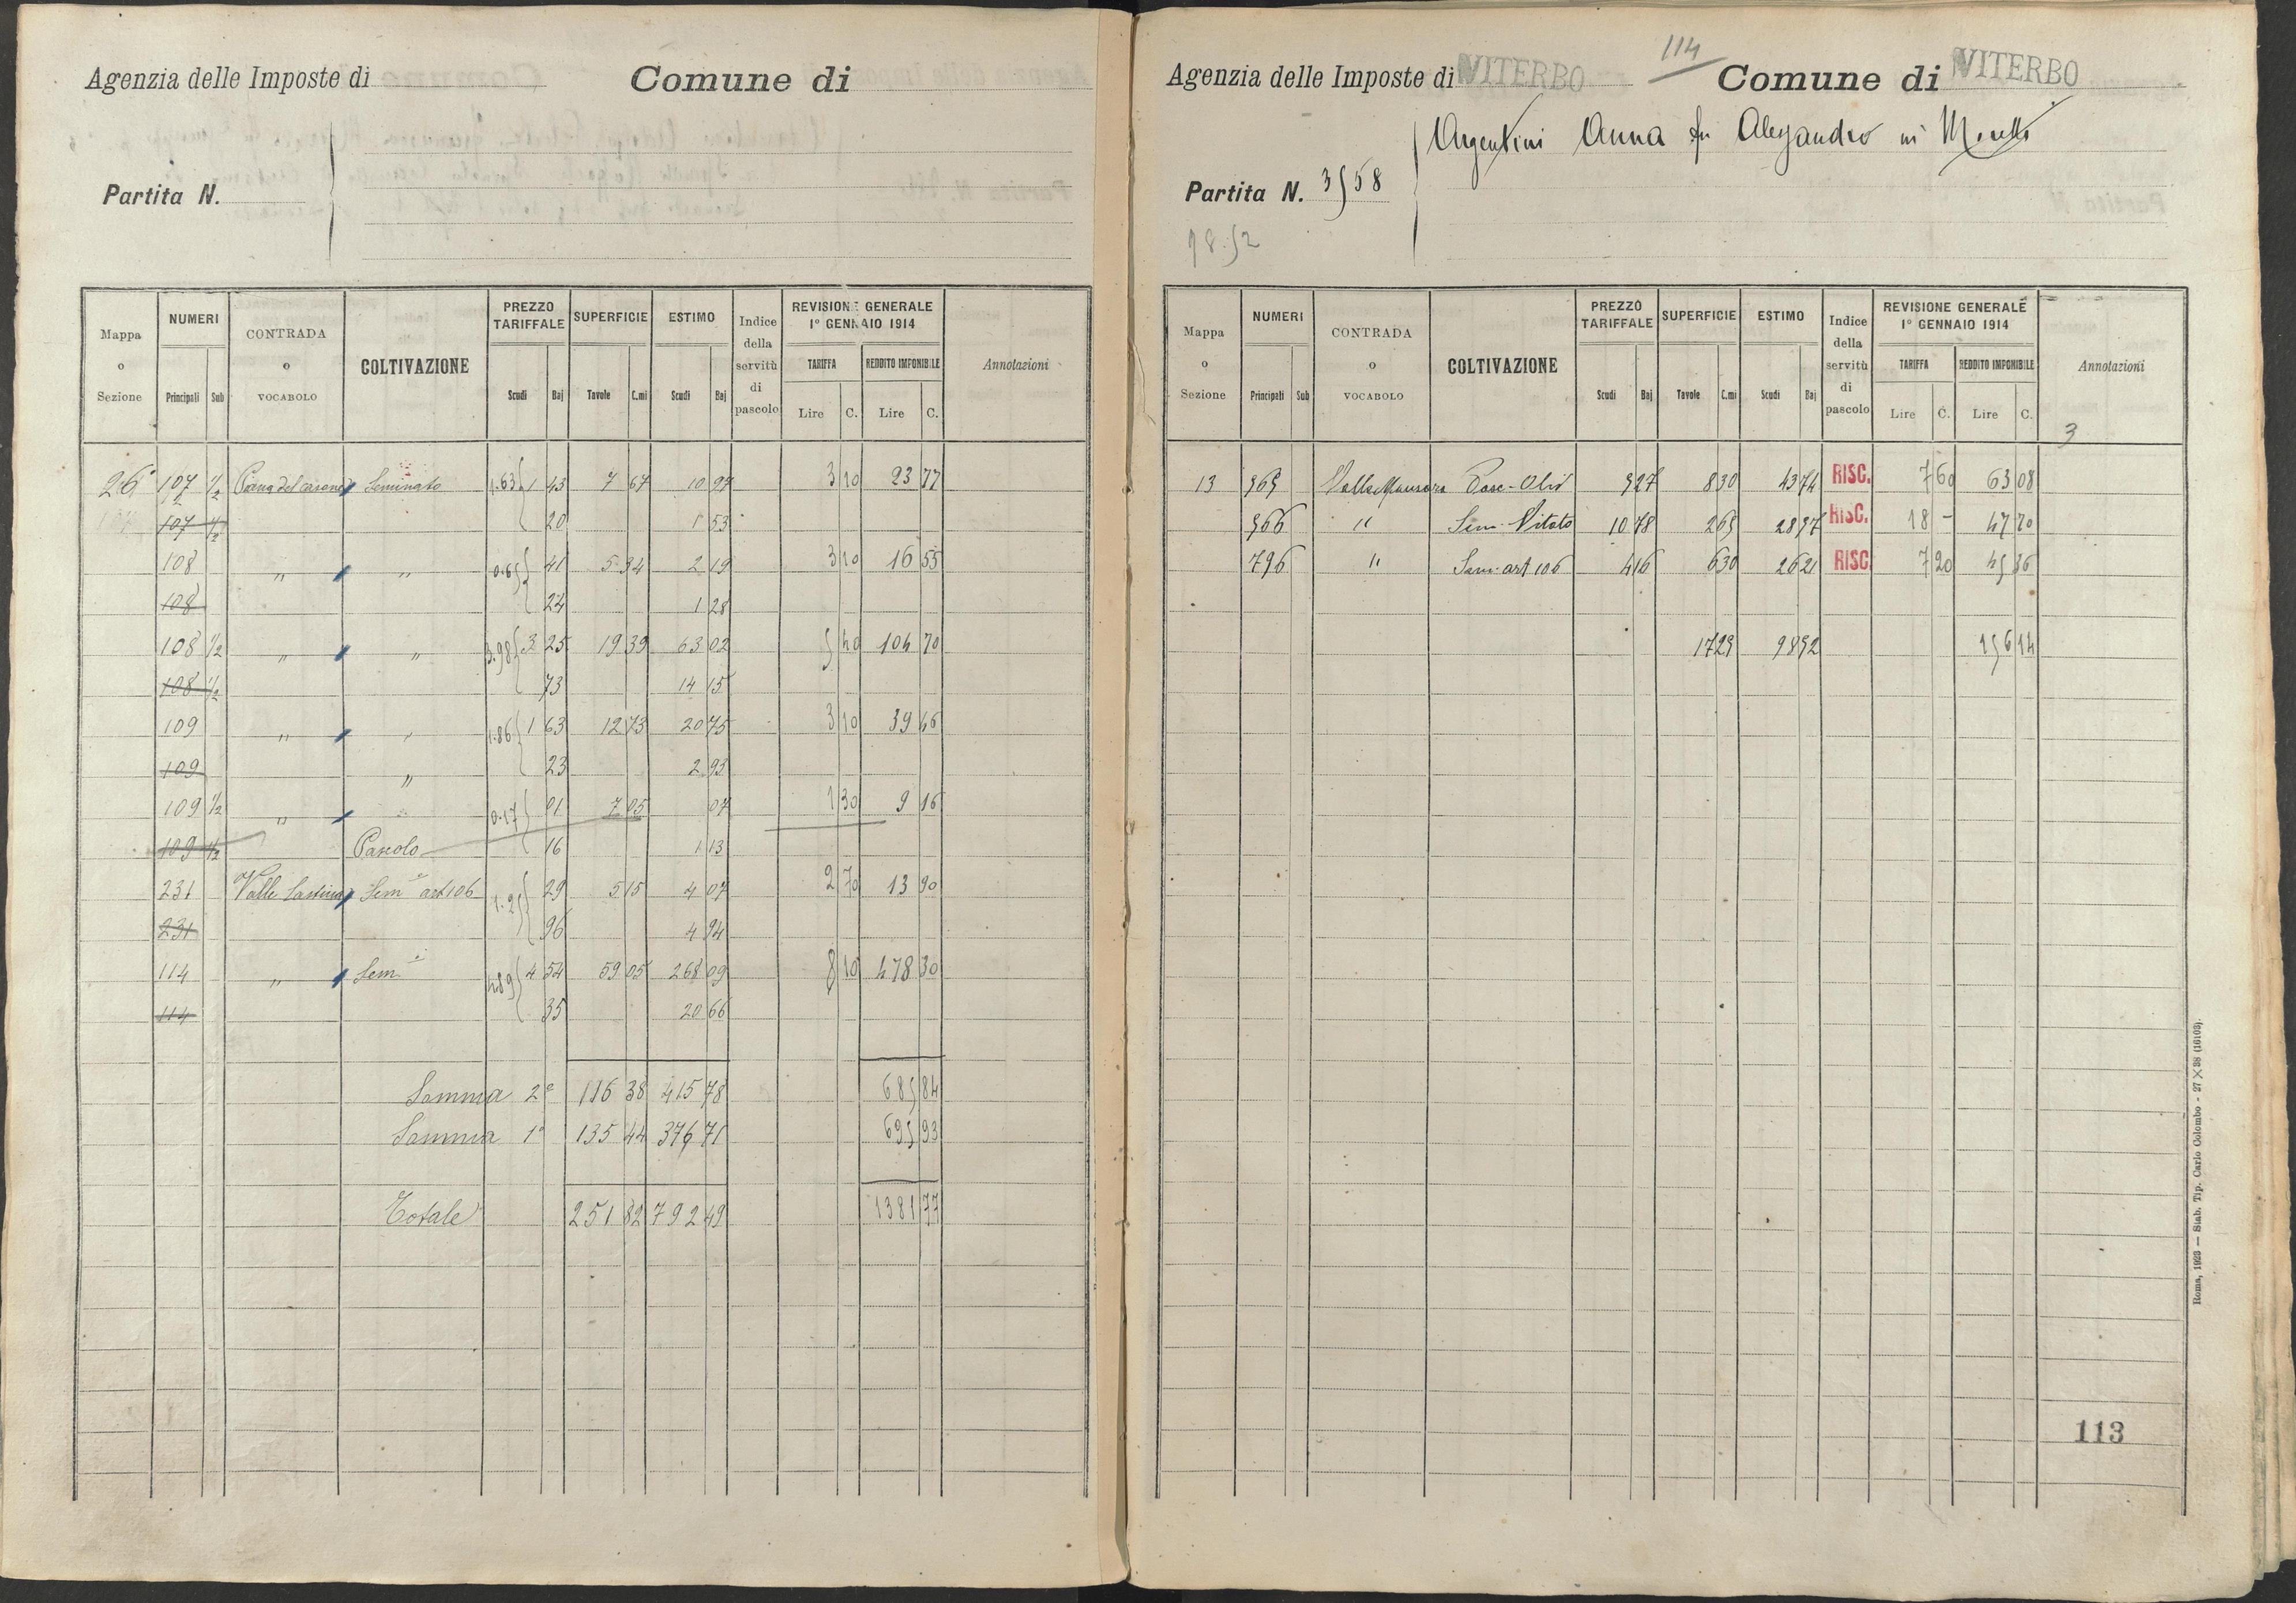 Agenzia delle Imposte di
Comune di
Partita N.
Mappa o Sezione | NUMERI Principali Sub | CONTRADA o VOCABOLO | COLTIVAZIONE | PREZZO TARIFFALE Scudi Baj | SUPERFICIE Tavole C.mi | ESTIMO Scudi Baj | Indice della servitù di pascolo | REVISIONE GENERALE 1° GENNAIO 1914 TARIFFA Lire C. REDDITO IMPONIBILE Lire C. | Annotazioni
26 107 1/2 Seminato 1.63 1 43 7 67 10 97 3 10 23 77
107 1/2 20 1 53
108 " " 0.65 41 5 34 2 19 3 10 16 55
108 24 1 28
108 1/2 " " 3.98 3 25 19 39 63 02 5 40 104 70
108 1/2 73 14 15
109 " " 1.86 1 63 12 73 20 75 3 10 39 46
109 " 23 2 93
109 1/2 " " 0.17 01 7 05 07 1 30 9 16
109 1/2 Pascolo 16 1 13
231 Valle Sem.o art 106 1.25 29 5 15 4 07 2 70 13 90
231 96 4 94
114 " Sem.o 4.89 4 54 59 05 268 09 8 10 478 30
114 35 20 66
Somma 2a 116 38 415 78 685 84
Somma 1a 135 44 376 71 695 93
Totale 251 82 792 49 1381 77
Agenzia delle Imposte di VITERBO
114
Comune di VITERBO
Argentini Anna fu Alessandro in
Partita N. 3558
18.52
Mappa o Sezione | NUMERI Principali Sub | CONTRADA o VOCABOLO | COLTIVAZIONE | PREZZO TARIFFALE Scudi Baj | SUPERFICIE Tavole C.mi | ESTIMO Scudi Baj | Indice della servitù di pascolo | REVISIONE GENERALE 1° GENNAIO 1914 TARIFFA Lire C. REDDITO IMPONIBILE Lire C. | Annotazioni
3
13 565 Pasc-Oliv 5 27 8 30 43 74 RISC. 7 60 63 08
566 " Sem. Vitato 10 78 2 65 28 57 RISC. 18 - 47 70
796 " Sem. art 106 4 16 6 30 26 21 RISC. 7 20 45 36
17 25 98 52 156 14
113
Roma, 1923 — Stab. Tip. Carlo Colombo - 27 X 38 (16103).